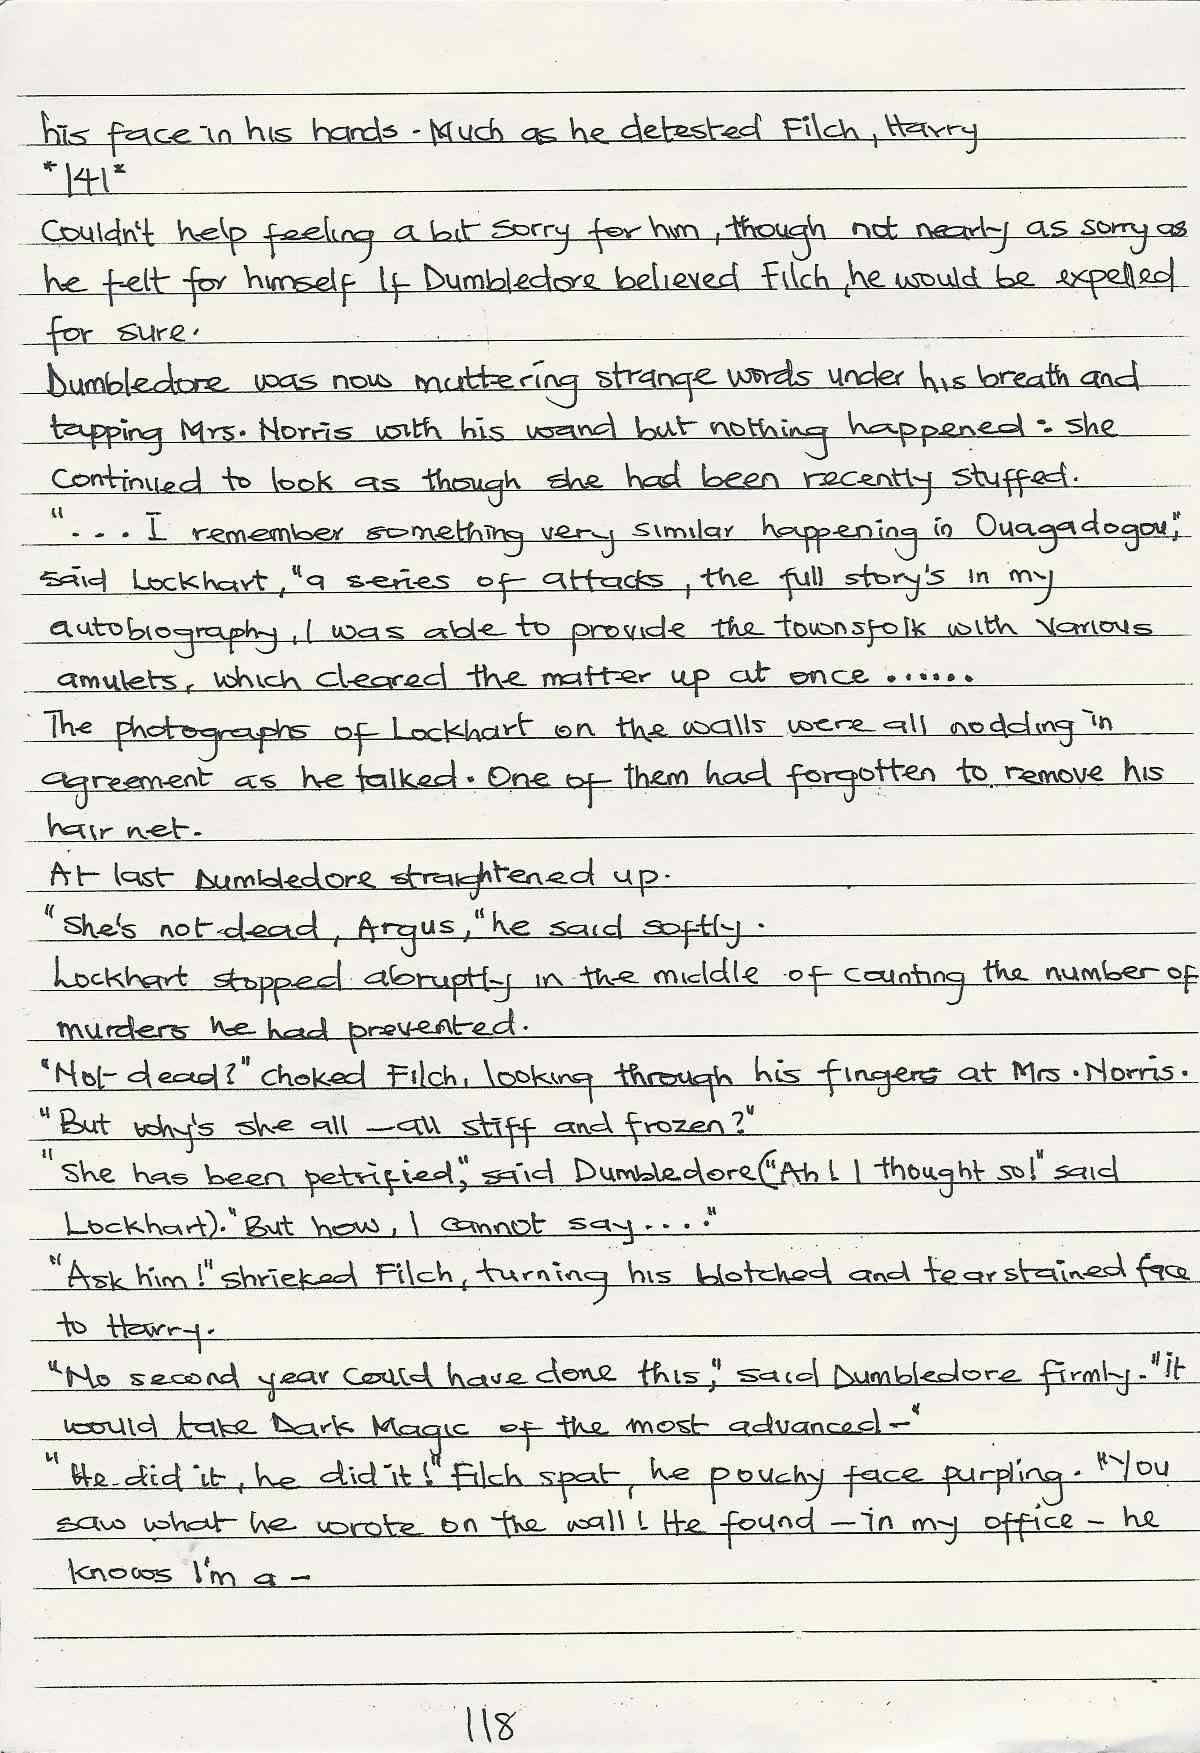 his face in his hands. Much as he detested Filch, Harry
*141*
Couldn't help feeling a bit sorry for him, though not nearly as sorry as
he felt for himself If Dumbledore believed Filch, he would be expelled
for sure.
Dumbledore was now muttering strange words under his breath and
tapping Mrs. Norris with his wand but nothing happened: she
continued to look as though she had been recently stuffed.
"... I remember something very similar happening in Ouagadogou,"
said Lockhart, "a series of attacks, the full story's in my
autobiography, I was able to provide the townsfolk with various
amulets, which cleared the matter up at once ......
The photographs of Lockhart on the walls were all nodding in
agreement as he talked. One of them had forgotten to remove his
hair net.
At last Dumbledore straightened up.
"She's not dead, Argus," he said softly.
Lockhart stopped abruptly in the middle of counting the number of
murders he had prevented.
"Not dead?" choked Filch, looking through his fingers at Mrs. Norris.
"But why's she all - all stiff and frozen?"
"She has been petrified," said Dumbledore ("Ah! I thought so!" said
Lockhart). "But how, I cannot say...."
"Ask him!" shrieked Filch, turning his blotched and tearstained face
to Harry.
"No second year could have done this," said Dumbledore firmly. "it
would take Dark Magic of the most advanced -"
"He did it, he did it!" Filch spat, he pouchy face purpling. "You
saw what he wrote on the wall! He found - in my office - he
knows I'm a -
118